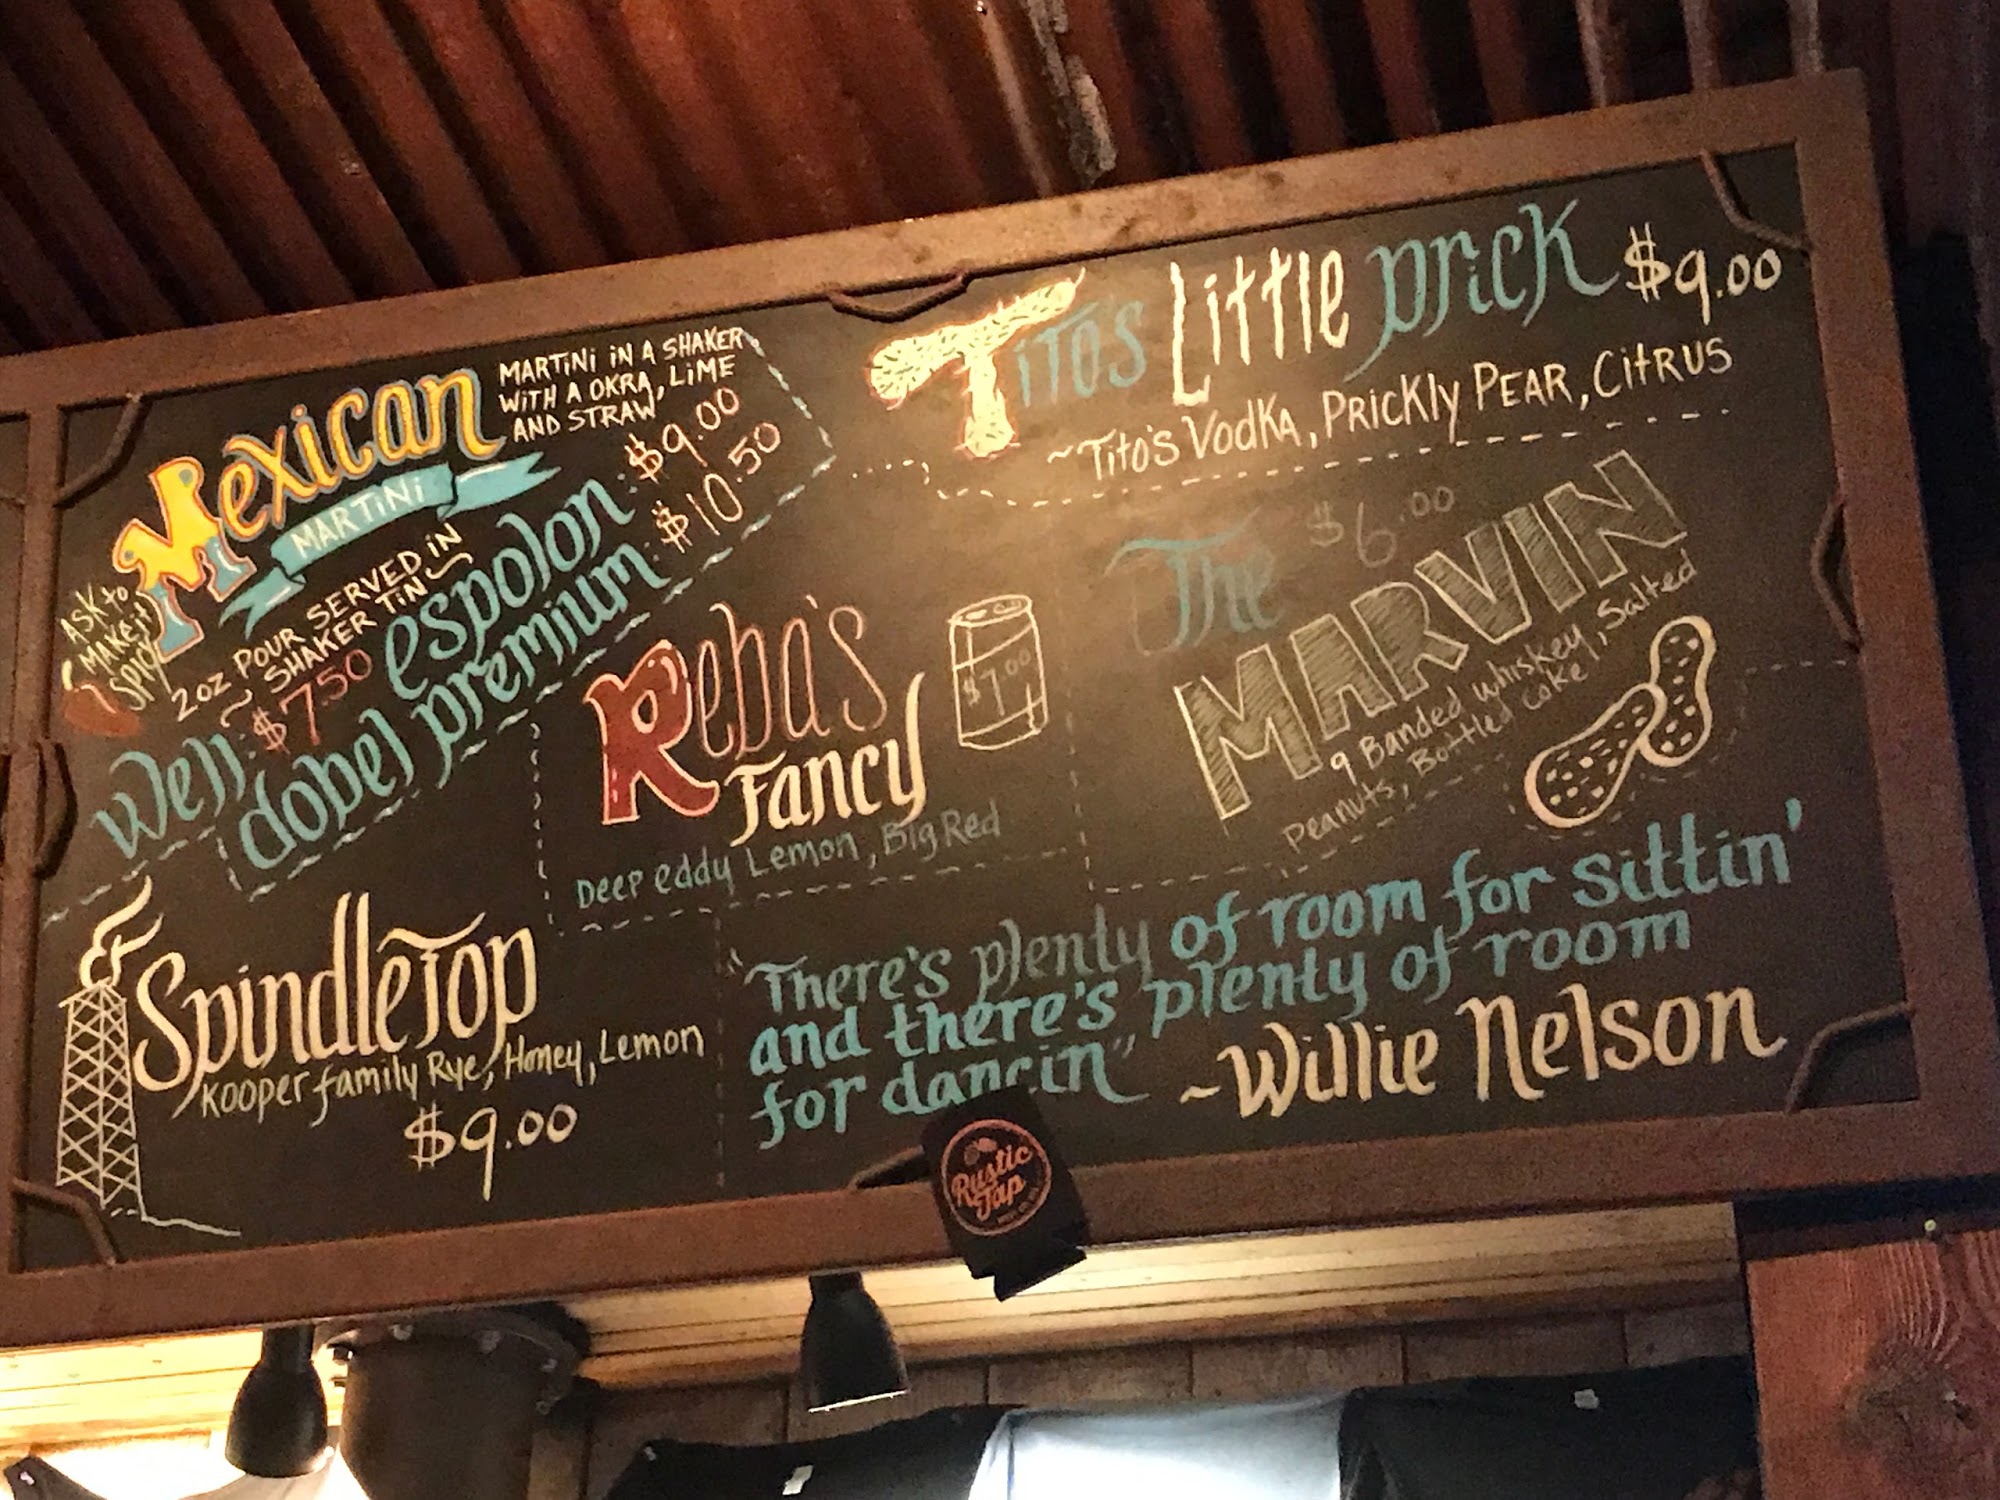 Mexican
MARTiNi
MARTiNi iN A SHAKER
WiTH A OKRA, LiME
AND STRAW
ASK to
MAKE it
SPICY
2oz POUR SERVED iN
~ SHAKER TiN ~
Well: $7.50
espolon: $9.00
dobel premium: $10.50
Tito's Little Prick $9.00
~Tito's Vodka, Prickly Pear, Citrus
The $6.00
MARVIN
9 Banded whiskey, Salted
Peanuts, Bottled coke
Reba's
Fancy
$7.00
Deep eddy Lemon, Big Red
SpindleTop
Kooper family Rye, Honey, Lemon
$9.00
"There's plenty of room for sittin'
and there's plenty of room
for dancin" ~Willie Nelson
Rustic
Tap